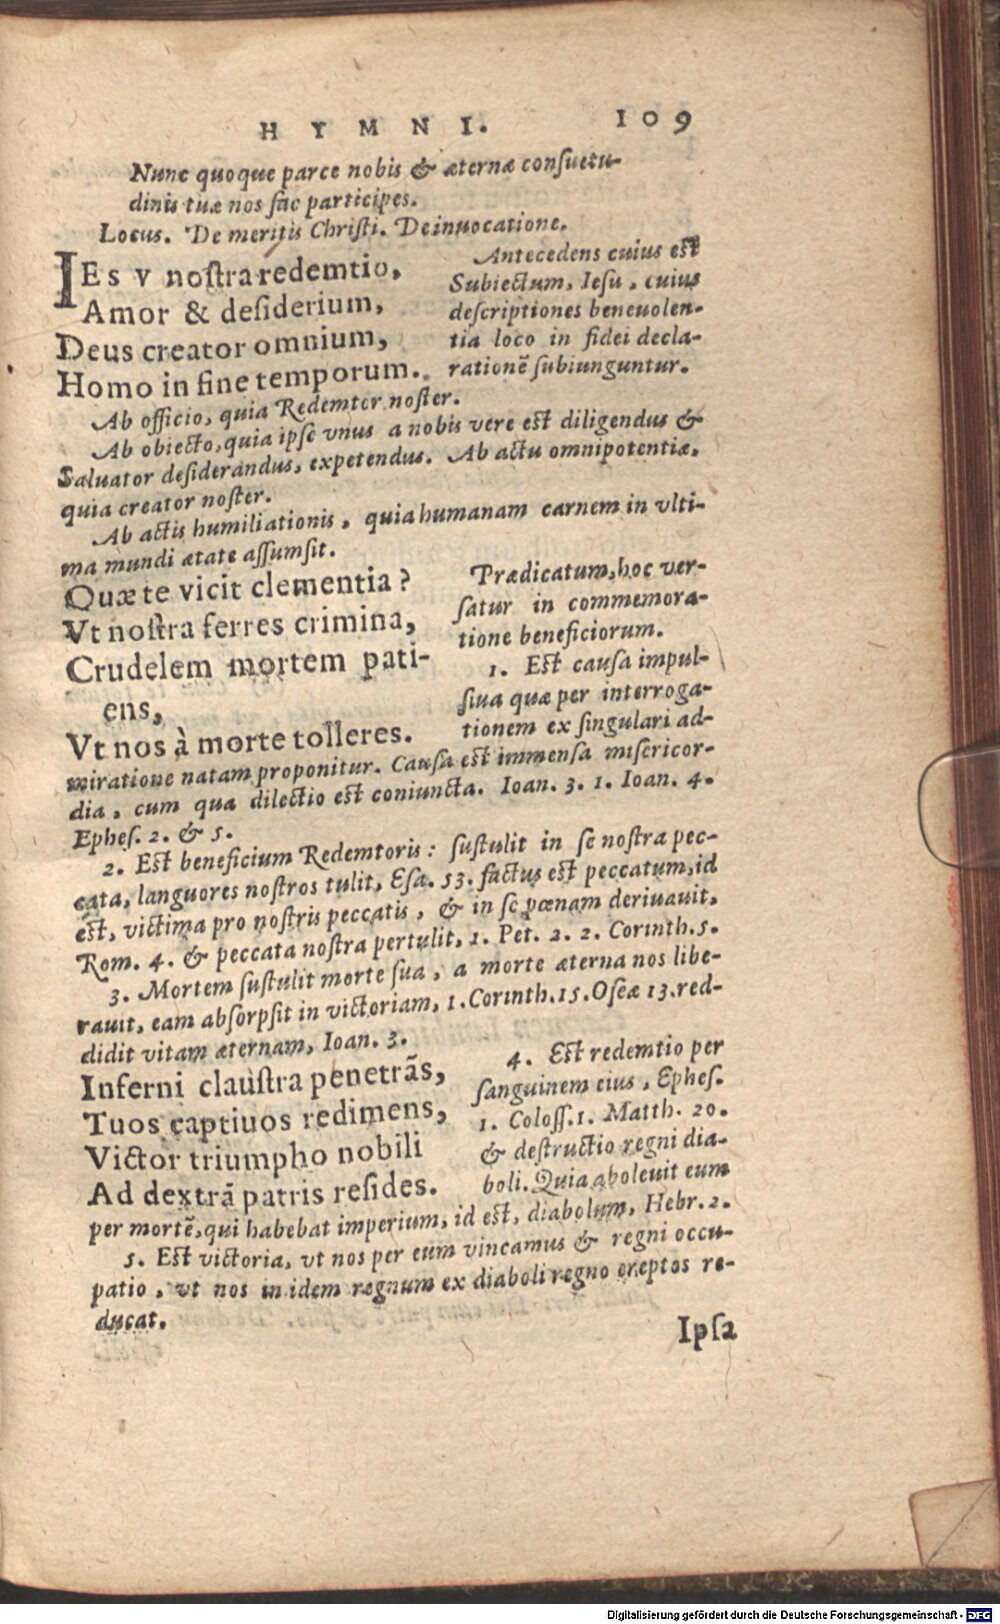 HYMNI. 109
Nunc quoque parce nobis & æternæ consuetu-
dinis tuæ nos fac participes.
Locus. De meritis Christi. De inuocatione.
IEsv nostra redemtio,
Amor & desiderium,
Deus creator omnium,
Homo in fine temporum.
Antecedens cuius est
Subiectum, Iesu, cuius
descriptiones beneuolen-
tia loco in fidei decla-
rationē subiunguntur.
Ab officio, quia Redemtor noster.
Ab obiecto, quia ipse vnus a nobis vere est diligendus &
Saluator desiderandus, expetendus. Ab actu omnipotentiæ,
quia creator noster.
Ab actis humiliationis, quia humanam carnem in vlti-
ma mundi ætate assumsit.
Quæ te vicit clementia?
Vt nostra ferres crimina,
Crudelem mortem pati-
ens,
Vt nos à morte tolleres.
Prædicatum, hoc ver-
satur in commemora-
tione beneficiorum.
1. Est causa impul-
siua quæ per interroga-
tionem ex singulari ad-
miratione natam proponitur. Causa est immensa misericor-
dia, cum qua dilectio est coniuncta. Ioan. 3. 1. Ioan. 4.
Ephes. 2. & 5.
2. Est beneficium Redemtoris: sustulit in se nostra pec-
cata, languores nostros tulit, Esa. 53. factus est peccatum, id
est, victima pro nostris peccatis, & in se pœnam deriuauit,
Rom. 4. & peccata nostra pertulit, 1. Pet. 2. 2. Corinth. 5.
3. Mortem sustulit morte sua, a morte æterna nos libe-
rauit, eam absorpsit in victoriam, 1. Corinth. 15. Oseæ 13. red-
didit vitam æternam, Ioan. 3.
Inferni claustra penetrās,
Tuos captiuos redimens,
Victor triumpho nobili
Ad dextrā patris resides.
4. Est redemtio per
sanguinem eius, Ephes.
1. Coloss. 1. Matth. 20.
& destructio regni dia-
boli. Quia aboleuit eum
per mortē, qui habebat imperium, id est, diabolum, Hebr. 2.
5. Est victoria, vt nos per eum vincamus & regni occu-
patio, vt nos in idem regnum ex diaboli regno ereptos re-
ducat.
Ipsa
Digitalisierung gefördert durch die Deutsche Forschungsgemeinschaft - DFG